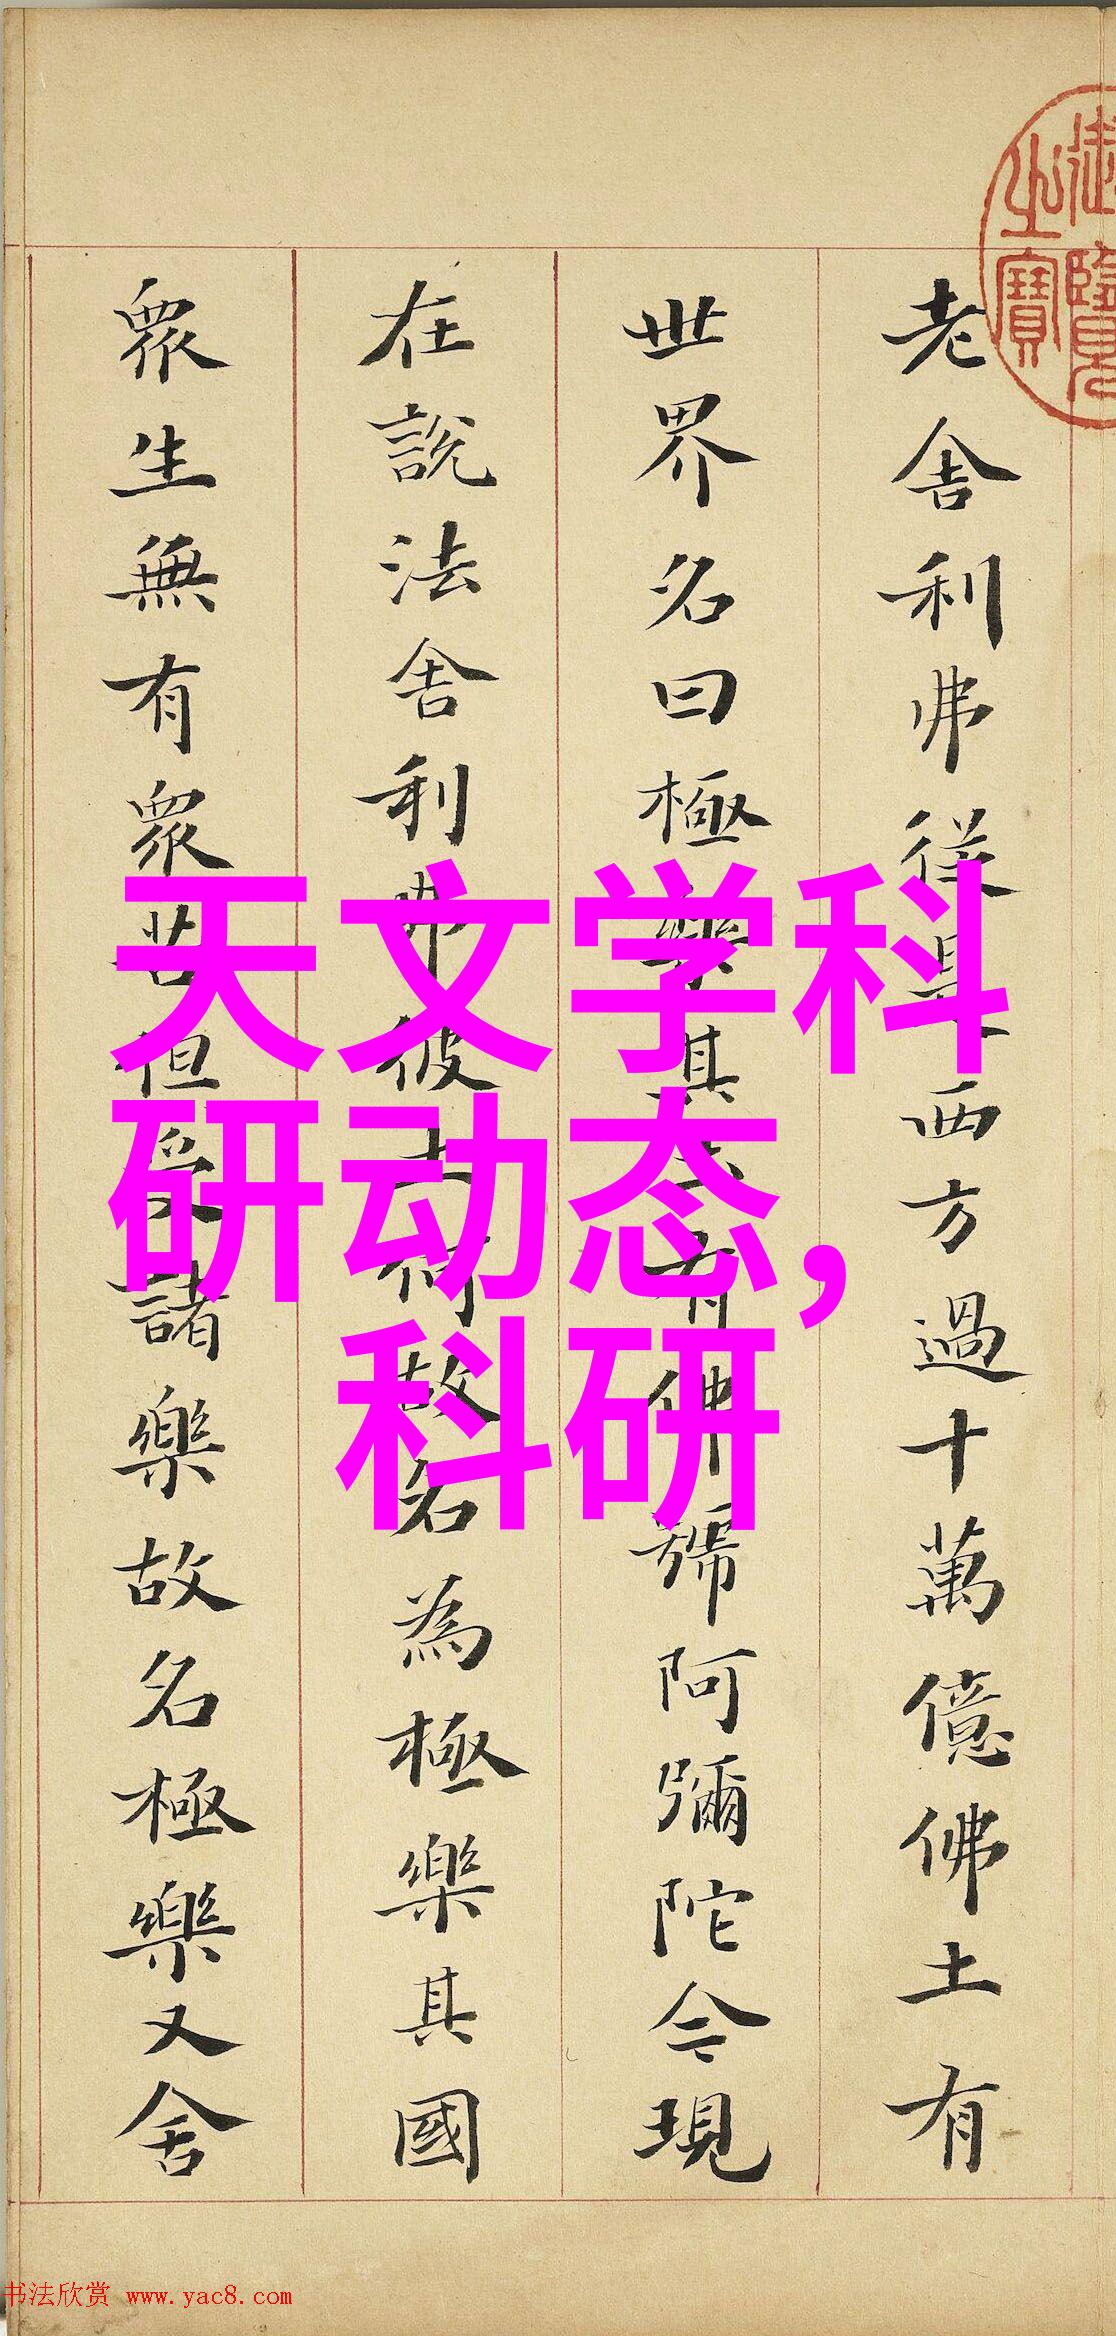 老舍利弗從是西方過十萬億佛土有
世界名曰極樂其土有佛號阿彌陀今現
在說法舍利弗彼土何故名為極樂其國
眾生無有眾苦但受諸樂故名極樂又舍
御覽之寶
天文学科
研动态,
科研
书法欣赏 www.yac8.com